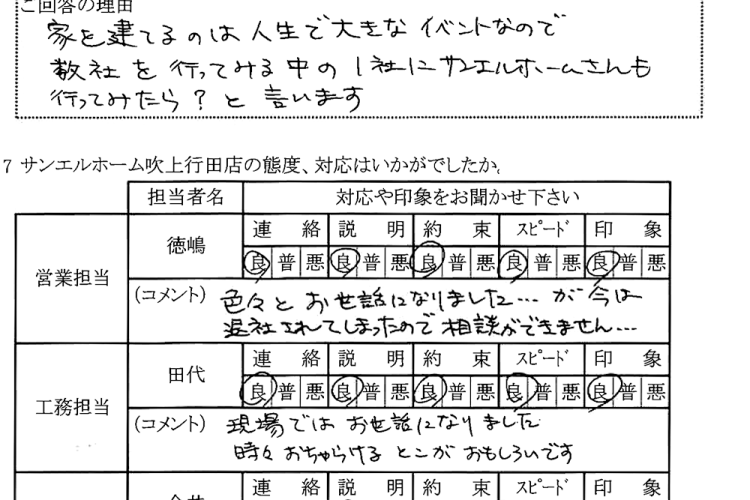 ご回答の理由
家を建てるのは人生で大きなイベントなので
数社を行ってみる中の1社にサンエルホームさんも
行ってみたら？と言います
7 サンエルホーム吹上行田店の態度、対応はいかがでしたか。
担当者名 対応や印象をお聞かせ下さい
営業担当 徳嶋 連絡 説明 約束 スピード 印象
良 普 悪 良 普 悪 良 普 悪 良 普 悪 良 普 悪
(コメント) 色々とお世話になりました…が今は
退社されてしまったので相談ができません…
工務担当 田代 連絡 説明 約束 スピード 印象
良 普 悪 良 普 悪 良 普 悪 良 普 悪 良 普 悪
(コメント) 現場ではお世話になりました
時々おちゃらけるとこがおもしろいです
連絡 説明 約束 スピード 印象